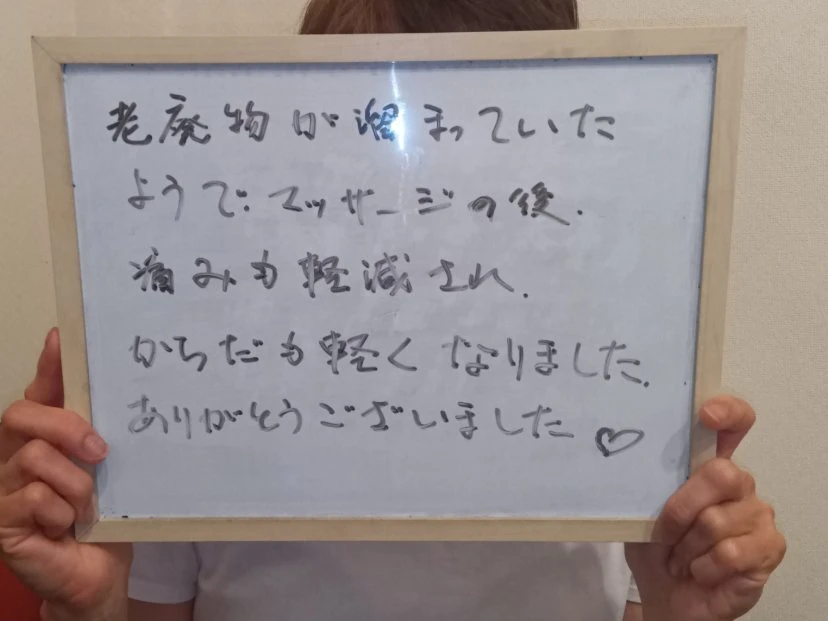 老廃物が溜まっていた
ようで、マッサージの後、
痛みも軽減され、
からだも軽くなりました。
ありがとうございました♡